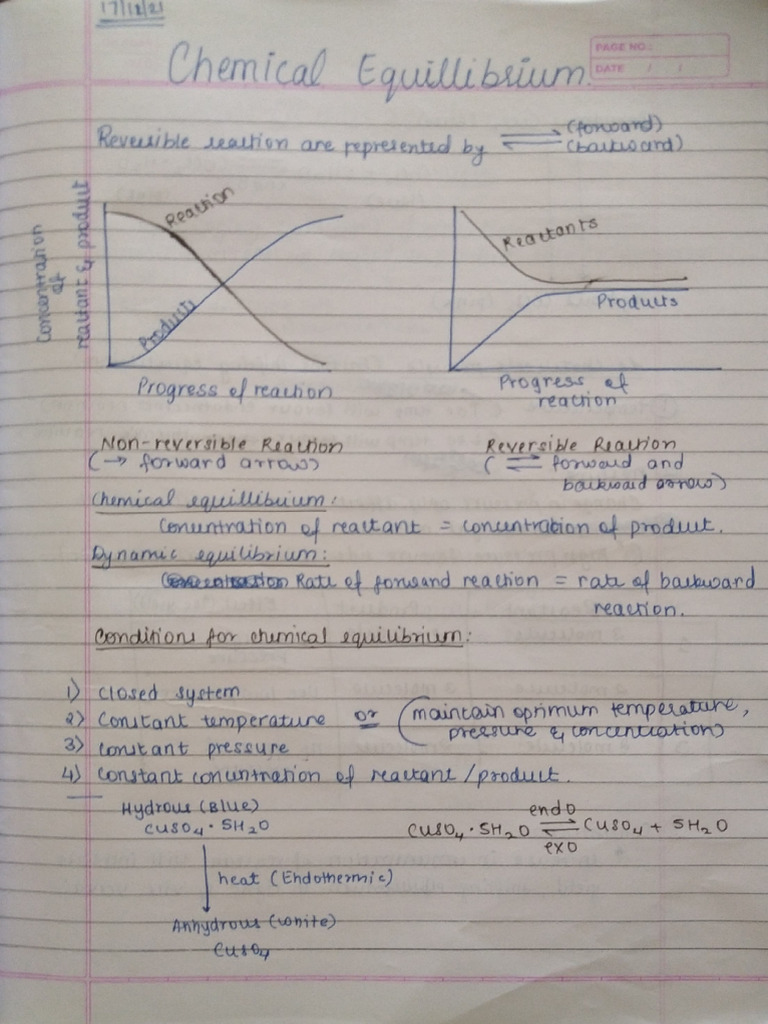 17/12/21
PAGE NO.:
DATE / /
Chemical Equillibrium.
Reversible reaction are represented by ⇌ (forward)
(backward)
Concentration of reactant & product
Reaction
Products
Progress of reaction
Reactants
Products
Progress of
reaction
Non-reversible Reaction
(→ forward arrow)
Reversible Reaction
(⇌ forward and
backward arrow)
Chemical equillibrium:
Concentration of reactant = concentration of product.
Dynamic equilibrium:
Rate of forward reaction = rate of backward
reaction.
Conditions for chemical equilibrium:
1) Closed system
2) Constant temperature or (maintain optimum temperature,
pressure & concentration)
3) Constant pressure
4) Constant concentration of reactant / product.
Hydrous (Blue)
CuSO4 · 5H2O
heat (Endothermic)
Anhydrous (White)
CuSO4
endo
CuSO4 · 5H2O ⇌ CuSO4 + 5H2O
exo